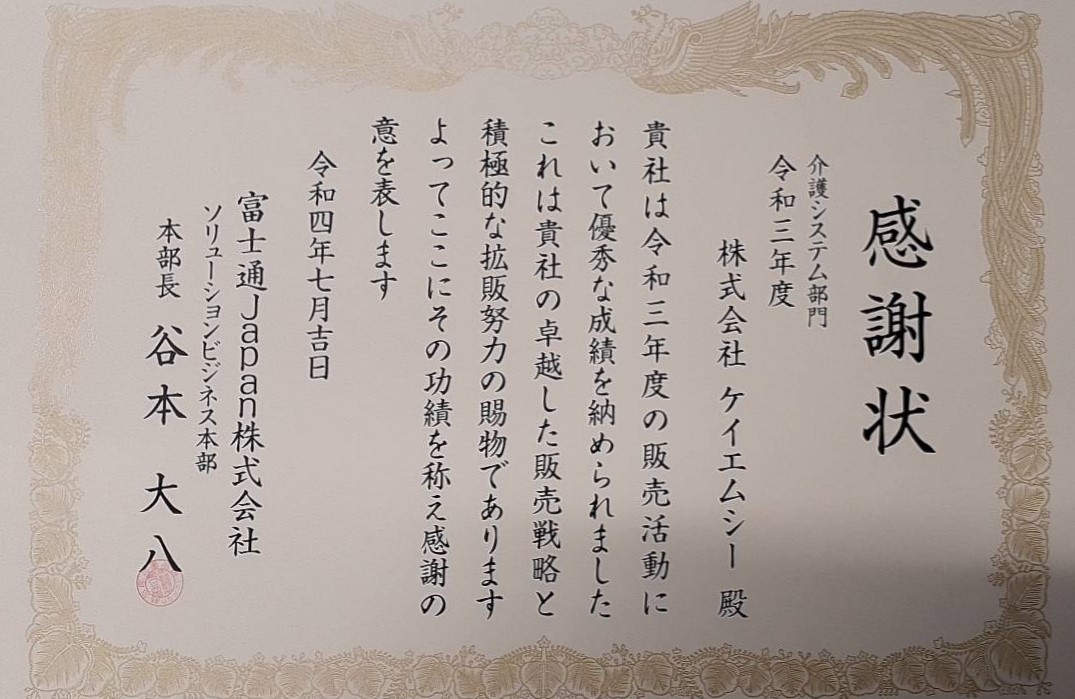 感謝状
介護システム部門
令和三年度
株式会社 ケイエムシー 殿
貴社は令和三年度の販売活動に
おいて優秀な成績を納められました
これは貴社の卓越した販売戦略と
積極的な拡販努力の賜物であります
よってここにその功績を称え感謝の
意を表します
令和四年七月吉日
富士通Japan株式会社
ソリューションビジネス本部
本部長 谷本 大八